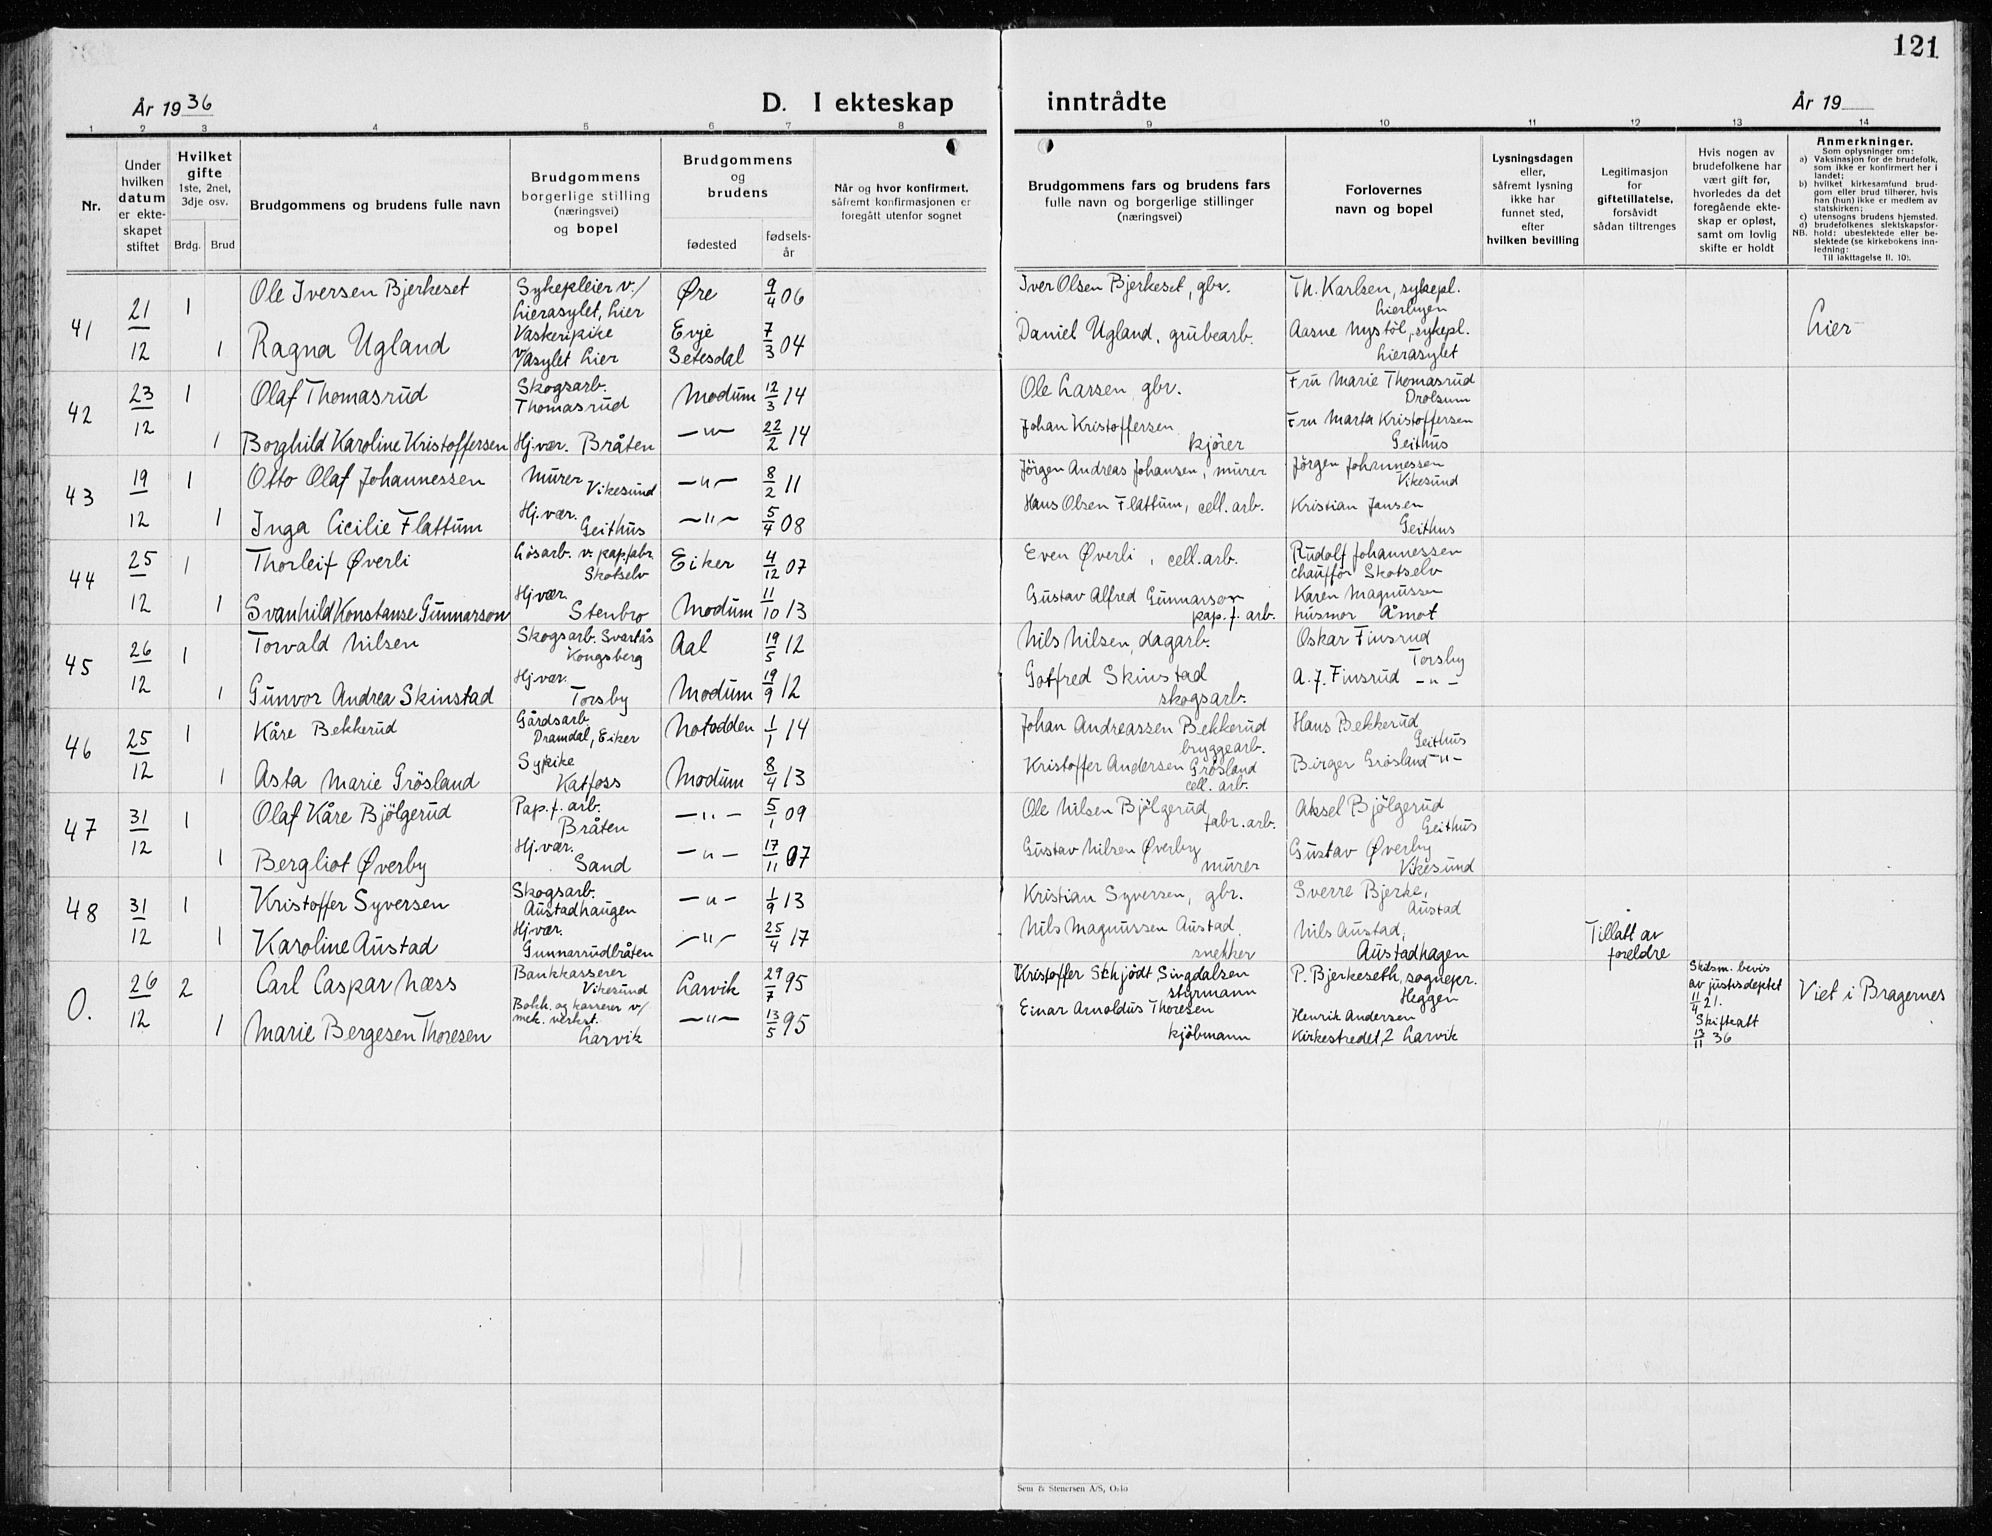 121
År 1936
D. I ekteskap
inntrådte
År 19
1 2 3 4 5 6 7 8 9 10 11 12 13 14
Nr.
Under
hvilken
datum
er ekte-
skapet
stiftet
Hvilket
gifte
1ste, 2net,
3dje osv.
Brdg. Brud
Brudgommens og brudens fulle navn
Brudgommens
borgerlige stilling
(næringsvei)
og bopel
Brudgommens
og
brudens
fødested
fødsels-
år
Når og hvor konfirmert,
såfremt konfirmasjonen er
foregått utenfor sognet
Brudgommens fars og brudens fars
fulle navn og borgerlige stillinger
(næringsvei)
Forlovernes
navn og bopel
Lysningsdagen
eller,
såfremt lysning
ikke har
funnet sted,
efter
hvilken bevilling
Legitimasjon
for
giftetillatelse,
forsåvidt
sådan tiltrenges
Hvis nogen av
brudefolkene har
vært gift før,
hvorledes da det
foregående ekte-
skap er opløst,
samt om lovlig
skifte er holdt
Anmerkninger.
Som oplysninger om:
a) Vaksinasjon for de brudefolk,
som ikke er konfirmert her i
landet;
b) hvilket kirkesamfund brud-
gom eller brud tilhører, hvis
han (hun) ikke er medlem av
statskirken;
c) utensogns brudens hjemsted.
d) brudefolkenes slektskapsfor-
hold: ubeslektede eller be-
slektede (se kirkebokens inn-
ledning:
NB. Til iakttagelse II. 10).
41 21/12 1 Ole Iversen Bjerkeset Sykepleier v./ Lierasylet, Lier Øre 9/4 06 Iver Olsen Bjerkeset, gbr. Th. Karlsen, sykepl. Lierbyen
1 Ragna Ugland Vaskeripike v/Asylet Lier Evje Setesdal 7/3 04 Daniel Ugland, grubearb. Aasne Nystöl, sykepl. Lierasylet Lier
42 23/12 1 Olaf Thomasrud Skogsarb. Thomasrud Modum 12/3 14 Ole Larsen, gbr. Fru Marie Thomasrud Drolsum
1 Borghild Karoline Kristoffersen Hj.vær. Bråten —"— 22/2 14 Johan Kristoffersen kjörer Fru Marta Kristoffersen Geithus
43 19/12 1 Otto Olaf Johannessen Murer Vikesund —"— 8/2 11 Jörgen Andreas Johansen, murer Jörgen Johannessen Vikesund
1 Inga Cicilie Flattum Hj.vær. Geithus —"— 5/4 08 Hans Olsen Flattum, cell. arb. Kristian Jensen Geithus
44 25/12 1 Thorleif Øverli Lösarb. v. pap.fabr. Skotselv Eiker 4/12 07 Even Øverli, cell. arb. Rudolf Johannessen chaufför Skotselv
1 Svanhild Konstanse Gunnarson Hj.vær Stenbro Modum 11/10 13 Gustav Alfred Gunnarson pap. f. arb. Karen Magnussen husmor Åmot
45 26/12 1 Torvald Nilsen Skogsarb. Svartås Kongsberg Aal 19/5 12 Nils Nilsen, dagarb. Oskar Finsrud Torsby
1 Gunvor Andrea Skinstad Hj.vær. Torsby Modum 19/9 12 Gotfred Skinstad skogsarb. A. J. Finsrud —"—
46 25/12 1 Kåre Bekkerud Gårdsarb. Dramdal, Eiker Notodden 1/1 14 Johan Andreassen Bekkerud bryggearb. Hans Bekkerud Geithus
1 Asta Marie Grösland Sypike Katfoss Modum 8/4 13 Kristoffer Andersen Grösland cell. arb. Birger Grösland —"—
47 31/12 1 Olaf Kåre Bjölgerud Pap. f. arb. Bråten —"— 5/1 09 Ole Nilsen Bjölgerud fabr. arb. Aksel Bjölgerud Geithus
1 Bergliot Øverby Hj.vær. Sand —"— 17/11 07 Gustav Nilsen Øverby murer Gustav Øverby Vikesund
48 31/12 1 Kristoffer Syversen Skogsarb. Austadhaugen —"— 1/9 13 Kristian Syversen, gbr. Sverre Bjerke, Austad
1 Karoline Austad Hj.vær. Gunnarrudbråten —"— 25/4 17 Nils Magnussen Austad, snekker Nils Austad, Austadhagen Tillatt av foreldre
0. 26/12 2 Carl Caspar Næss Bankkasserer Vikesund Larvik 29/7 95 Kristoffer Schjödt Singdalsen styrmann P. Bjerkeseth, sognepr. Heggen Skilsm. bevis av justisdeptet 11/4 21. Skifteatt 17/11 36 Viet i Bragernes
1 Marie Bergesen Thoresen Bokh. og kasserer v/ mek. verkst. Larvik —"— 13/5 95 Einar Arnoldus Thoresen kjöbmann Henrik Andersen Kirkestredet, 2 Larvik
Sem & Stenersen A/S, Oslo